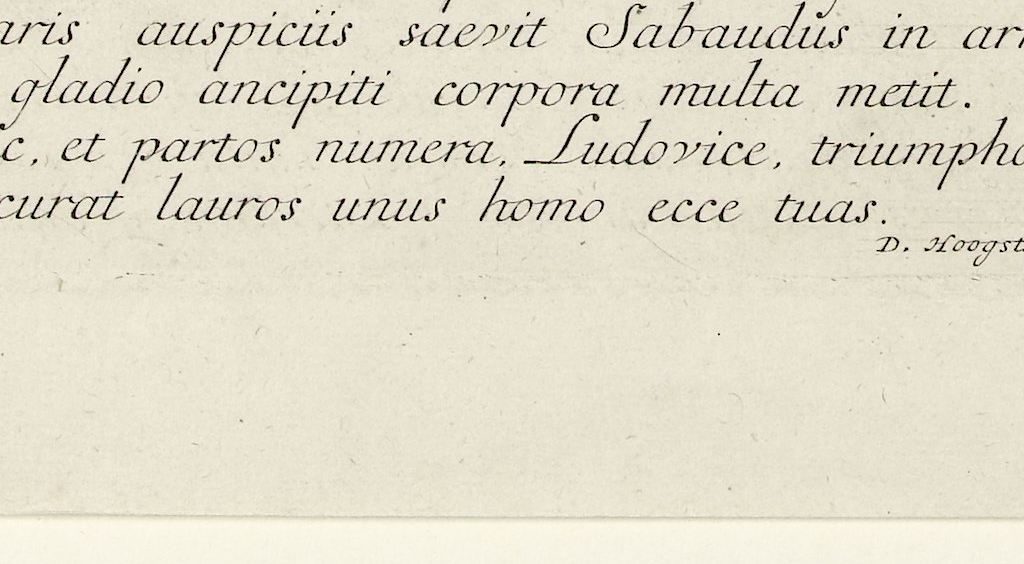 aris auspiciis saevit Sabaudus in arm
gladio ancipiti corpora multa metit.
c, et partos numera, Ludovice, triumpho
curat lauros unus homo ecce tuas.
D. Hoogst